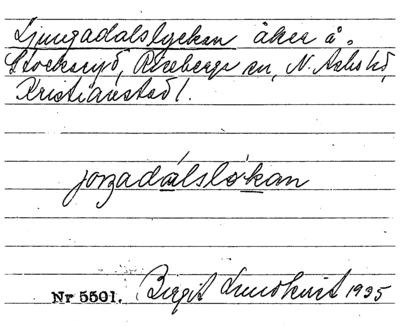 Ljungadalslyckan åker å.
Stocksryd, Riseberga sn, N. Åsbo hd,
Kristianstad l.
joŋadálslö́kan
Nr 5501. Birgit Lundkvist 1935